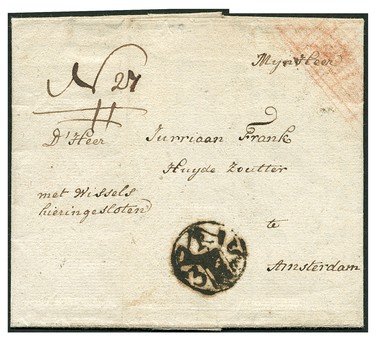 N 27
Mynheer
D' Heer Jurriaan Frank
Huyde Zoutter
met Wissels
hieringesloten
te
Amsterdam